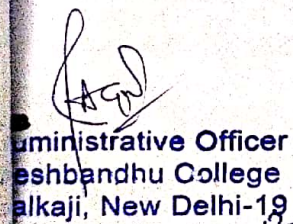 ministrative Officer
eshbandhu College
alkaji, New Delhi-19